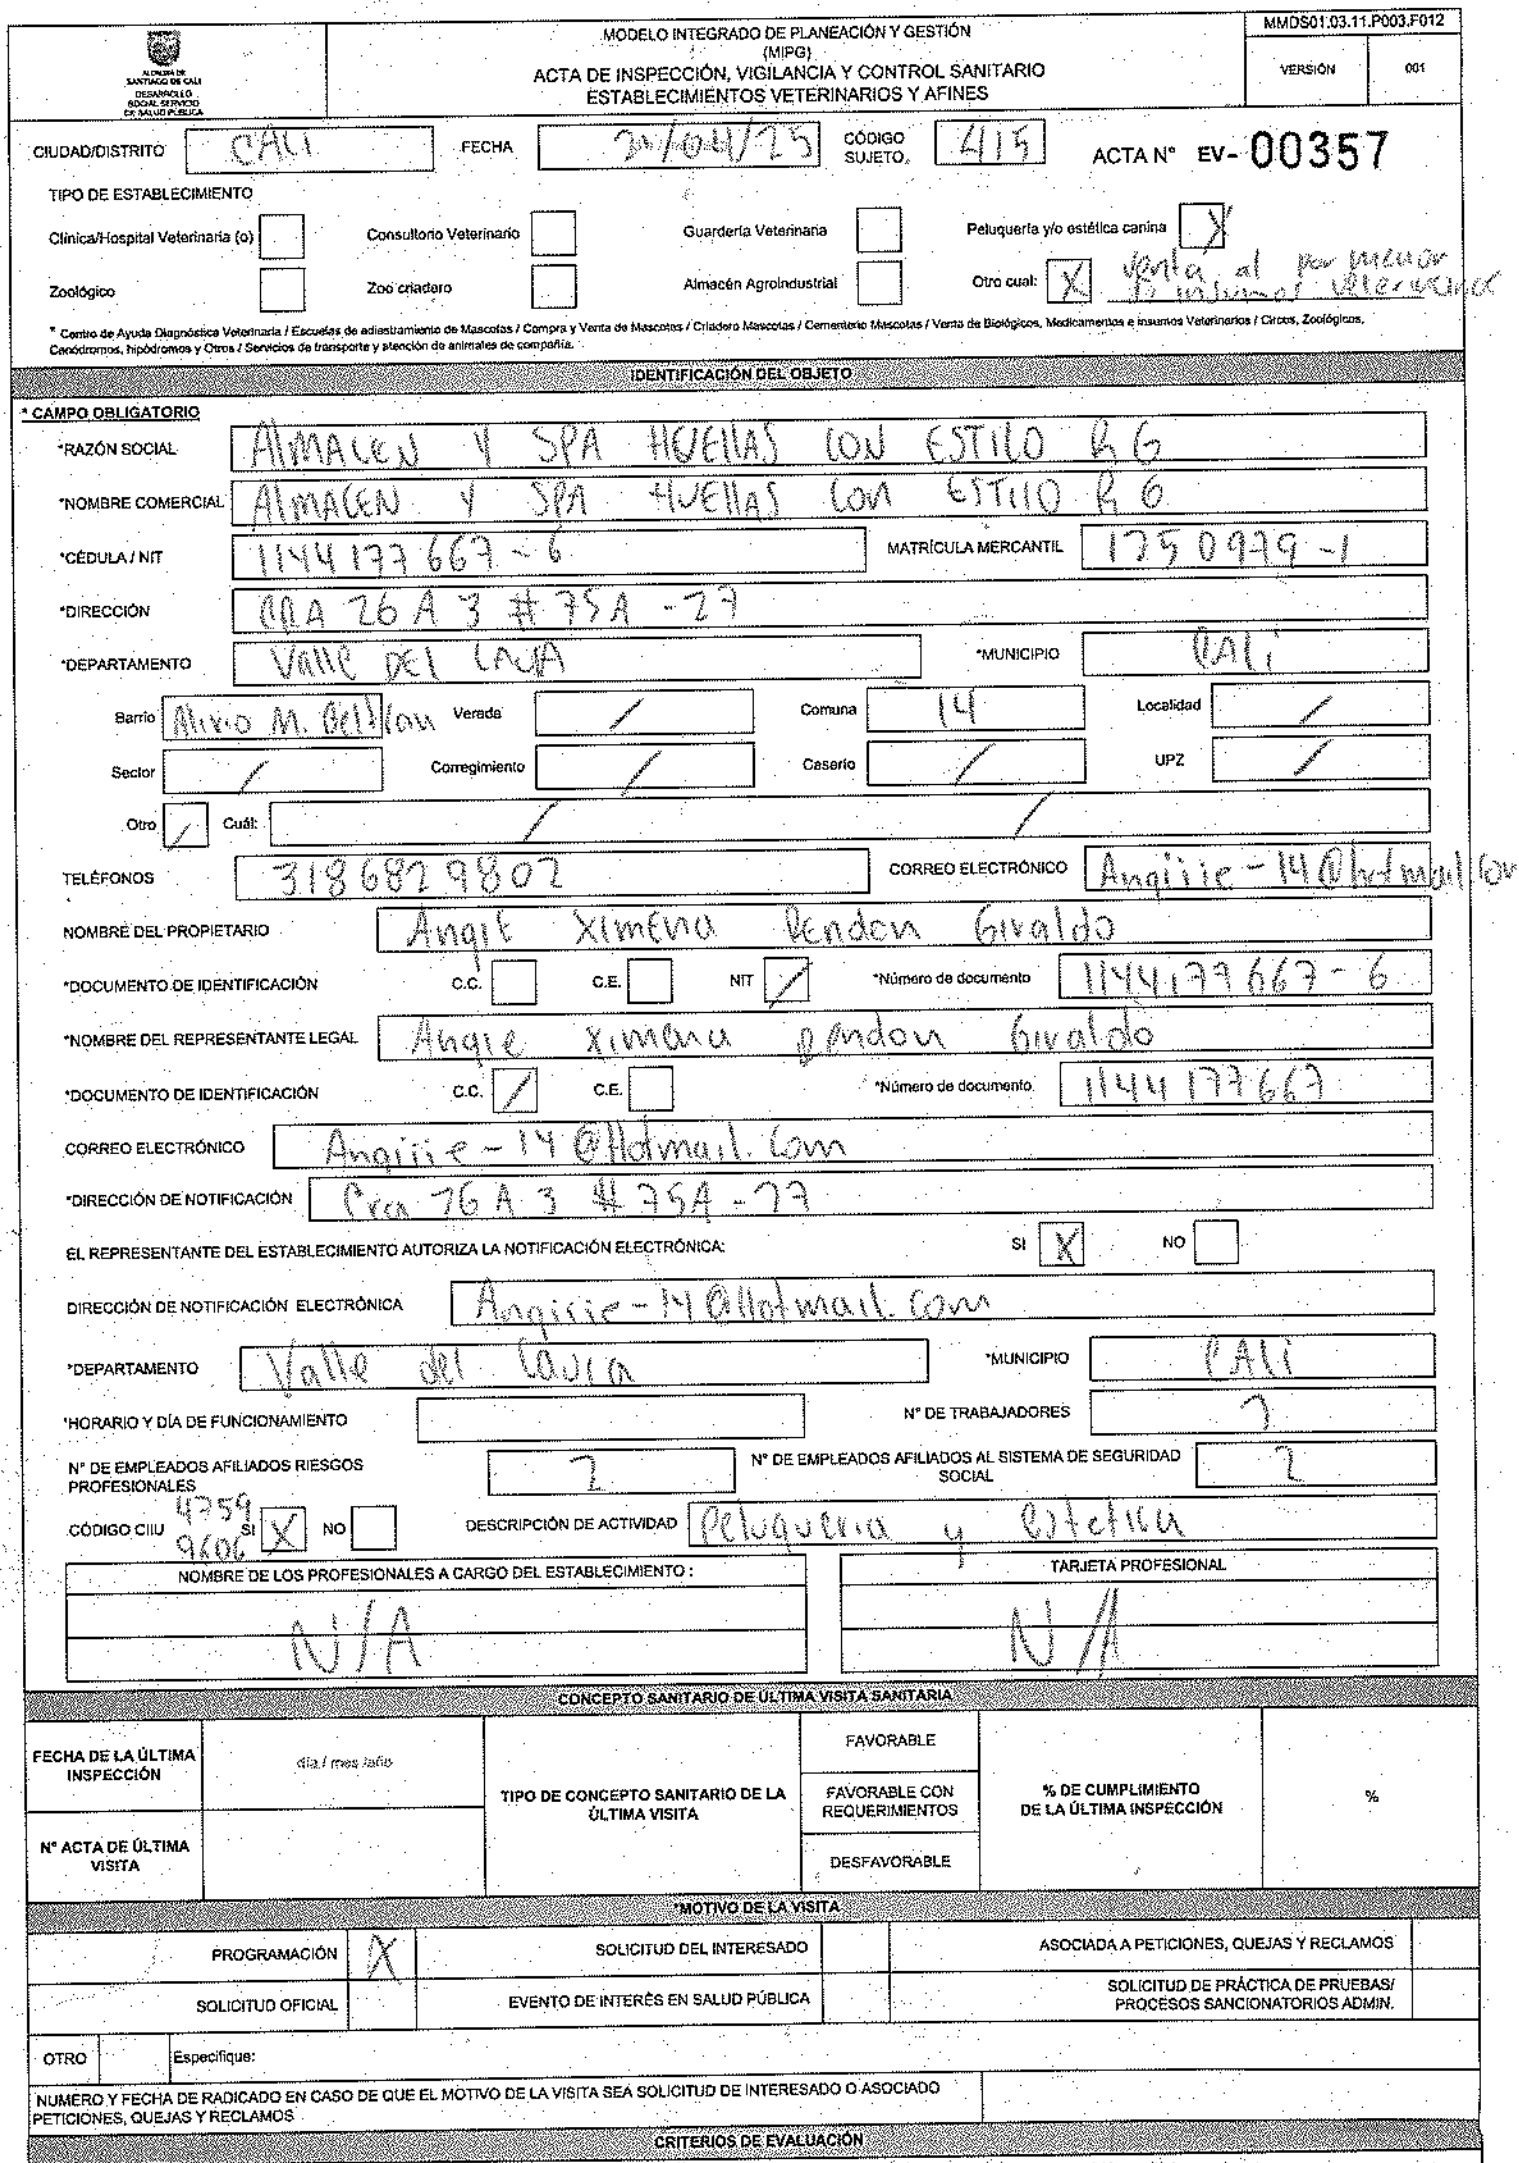 ALCALDÍA DE
SANTIAGO DE CALI
DESARROLLO
SOCIAL SERVICIO
DE SALUD PÚBLICA
MODELO INTEGRADO DE PLANEACIÓN Y GESTIÓN
(MIPG)
ACTA DE INSPECCIÓN, VIGILANCIA Y CONTROL SANITARIO
ESTABLECIMIENTOS VETERINARIOS Y AFINES
MMDS01.03.11.P003.F012
VERSIÓN 001
CIUDAD/DISTRITO CALI FECHA /04/25 CÓDIGO SUJETO. 415 ACTA N° EV- 00357
TIPO DE ESTABLECIMIENTO
Clínica/Hospital Veterinaria (o) Consultorio Veterinario Guardería Veterinaria Peluquería y/o estética canina X
Zoológico Zoo criadero Almacén Agroindustrial Otro cual: X Venta al por menor
de insumos veterinarios
* Centro de Ayuda Diagnóstica Veterinaria / Escuelas de adiestramiento de Mascotas / Compra y Venta de Mascotas / Criadero Mascotas / Cementerio Mascotas / Venta de Biológicos, Medicamentos e insumos Veterinarios / Circos, Zoológicos,
Canódromos, hipódromos y Otros / Servicios de transporte y atención de animales de compañía.
IDENTIFICACIÓN DEL OBJETO
* CAMPO OBLIGATORIO
*RAZÓN SOCIAL AlMACEN Y SPA HUEllAS CON ESTILO R G
*NOMBRE COMERCIAL AlMACEN Y SPA HUEllAS Con ESTIlO R G
*CÉDULA / NIT 1144177667-6 MATRÍCULA MERCANTIL 1250979-1
*DIRECCIÓN CRA 26 A 3 # 75A - 27
*DEPARTAMENTO Valle DEL CAUCA *MUNICIPIO CALi
Barrio Alirio M. Beltran Vereda / Comuna 14 Localidad /
Sector / Corregimiento / Caserío / UPZ /
Otro / Cuál: / /
TELÉFONOS 3186829802 CORREO ELECTRÓNICO Angiiie-14@hotmail.com
NOMBRE DEL PROPIETARIO Angie Ximena Rendon Giraldo
*DOCUMENTO DE IDENTIFICACIÓN C.C. C.E. NIT / *Número de documento 1144177667-6
*NOMBRE DEL REPRESENTANTE LEGAL Angie Ximena Rendon Giraldo
*DOCUMENTO DE IDENTIFICACIÓN C.C. / C.E. *Número de documento. 1144177667
CORREO ELECTRÓNICO Angiiie-14@Hotmail.com
*DIRECCIÓN DE NOTIFICACIÓN Cra 26 A 3 # 75A-27
EL REPRESENTANTE DEL ESTABLECIMIENTO AUTORIZA LA NOTIFICACIÓN ELECTRÓNICA: SI X NO
DIRECCIÓN DE NOTIFICACIÓN ELECTRÓNICA Angiiie-14@Hotmail.com
*DEPARTAMENTO Valle del Cauca *MUNICIPIO CALi
*HORARIO Y DÍA DE FUNCIONAMIENTO N° DE TRABAJADORES 2
N° DE EMPLEADOS AFILIADOS RIESGOS PROFESIONALES 2 N° DE EMPLEADOS AFILIADOS AL SISTEMA DE SEGURIDAD SOCIAL 2
CÓDIGO CIIU 4759 9606 SI X NO DESCRIPCIÓN DE ACTIVIDAD Peluqueria y estetica
NOMBRE DE LOS PROFESIONALES A CARGO DEL ESTABLECIMIENTO : TARJETA PROFESIONAL
N/A N/A
CONCEPTO SANITARIO DE ÚLTIMA VISITA SANITARIA
FECHA DE LA ÚLTIMA INSPECCIÓN día / mes /año TIPO DE CONCEPTO SANITARIO DE LA ÚLTIMA VISITA FAVORABLE
FAVORABLE CON REQUERIMIENTOS % DE CUMPLIMIENTO DE LA ÚLTIMA INSPECCIÓN %
N° ACTA DE ÚLTIMA VISITA DESFAVORABLE
*MOTIVO DE LA VISITA
PROGRAMACIÓN X SOLICITUD DEL INTERESADO ASOCIADA A PETICIONES, QUEJAS Y RECLAMOS
SOLICITUD OFICIAL EVENTO DE INTERÉS EN SALUD PÚBLICA SOLICITUD DE PRÁCTICA DE PRUEBAS/ PROCESOS SANCIONATORIOS ADMIN.
OTRO Especifique:
NUMERO Y FECHA DE RADICADO EN CASO DE QUE EL MOTIVO DE LA VISITA SEA SOLICITUD DE INTERESADO O ASOCIADO
PETICIONES, QUEJAS Y RECLAMOS
CRITERIOS DE EVALUACIÓN